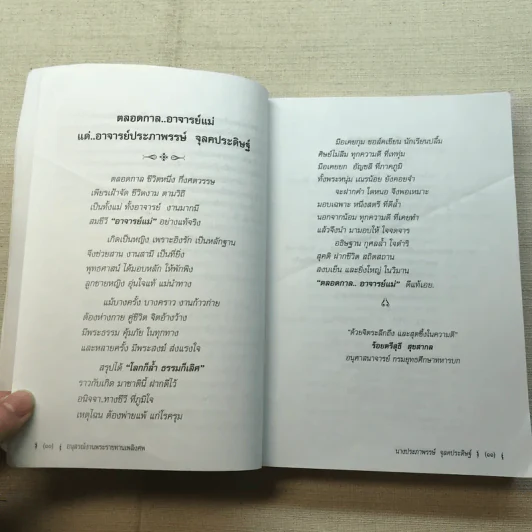 ตลอดกาล..อาจารย์แม่
แด่..อาจารย์ประภาพรรษ์ จุลคประดิษฐ์
ตลอดกาล ชีวิตหนึ่ง กึ่งศตวรรษ
เพียรเฝ้าจัด ชีวิตงาม ตามวิถี
เป็นทั้งแม่ ทั้งอาจารย์ งานมากมี
สมชีวี "อาจารย์แม่" อย่างแท้จริง
เกิดเป็นหญิง เพราะอิงรัก เป็นหลักฐาน
จึงช่วยสาน งานสามี เป็นที่ยิ่ง
พุทธศาสน์ ได้มอบหลัก ให้พักพิง
ลูกชายหญิง อุ่นใจแท้ แม่นำทาง
แม้บางครั้ง บางคราว งานก้าวก่าย
ต้องห่างกาย คู่ชีวิต จิตอ้างว้าง
มีพระธรรม คุ้มภัย ในทุกทาง
และหลายครั้ง มีพระสงฆ์ ส่งแรงใจ
สรุปได้ "โลกก็ล้ำ ธรรมก็เลิศ"
ราวกับเกิด มาชาตินี้ ฝากดีไว้
อนิจจา..ทางชีวี ที่ภูมิใจ
เหตุไฉน ต้องพ่ายแพ้ แก่โรครุม
(๑๐) อนุสรณ์งานพระราชทานเพลิงศพ
มือเคยกุม ชอล์คเขียน นักเรียนปลื้ม
ศิษย์ไม่ลืม ทุกความดี ที่เททุ่ม
มือเคยยก อัญชลี ที่ภาคภูมิ
ทั้งพระหนุ่ม เณรน้อย ยังคอยจำ
จะฝากคำ ใดหนอ จึงพอเหมาะ
มอบเฉพาะ หนึ่งสตรี ที่ดีล้ำ
นอกจากน้อม ทุกความดี ที่เคยทำ
แล้วจึงนำ มามอบให้ ใจจดจาร
อธิษฐาน กุศลล้ำ ใจดำริ
สุคติ ฝากชีวิต สถิตสถาน
สงบเย็น และยิ่งใหญ่ ในวิมาน
"ตลอดกาล.. อาจารย์แม่" ดีแท้เอย.
"ด้วยจิตระลึกถึง และสุดซึ้งในความดี"
ร้อยตรีสุธี สุขสากล
อนุศาสนาจารย์ กรมยุทธศึกษาทหารบก
นางประภาพรรษ์ จุลคประดิษฐ์ (๑๑)